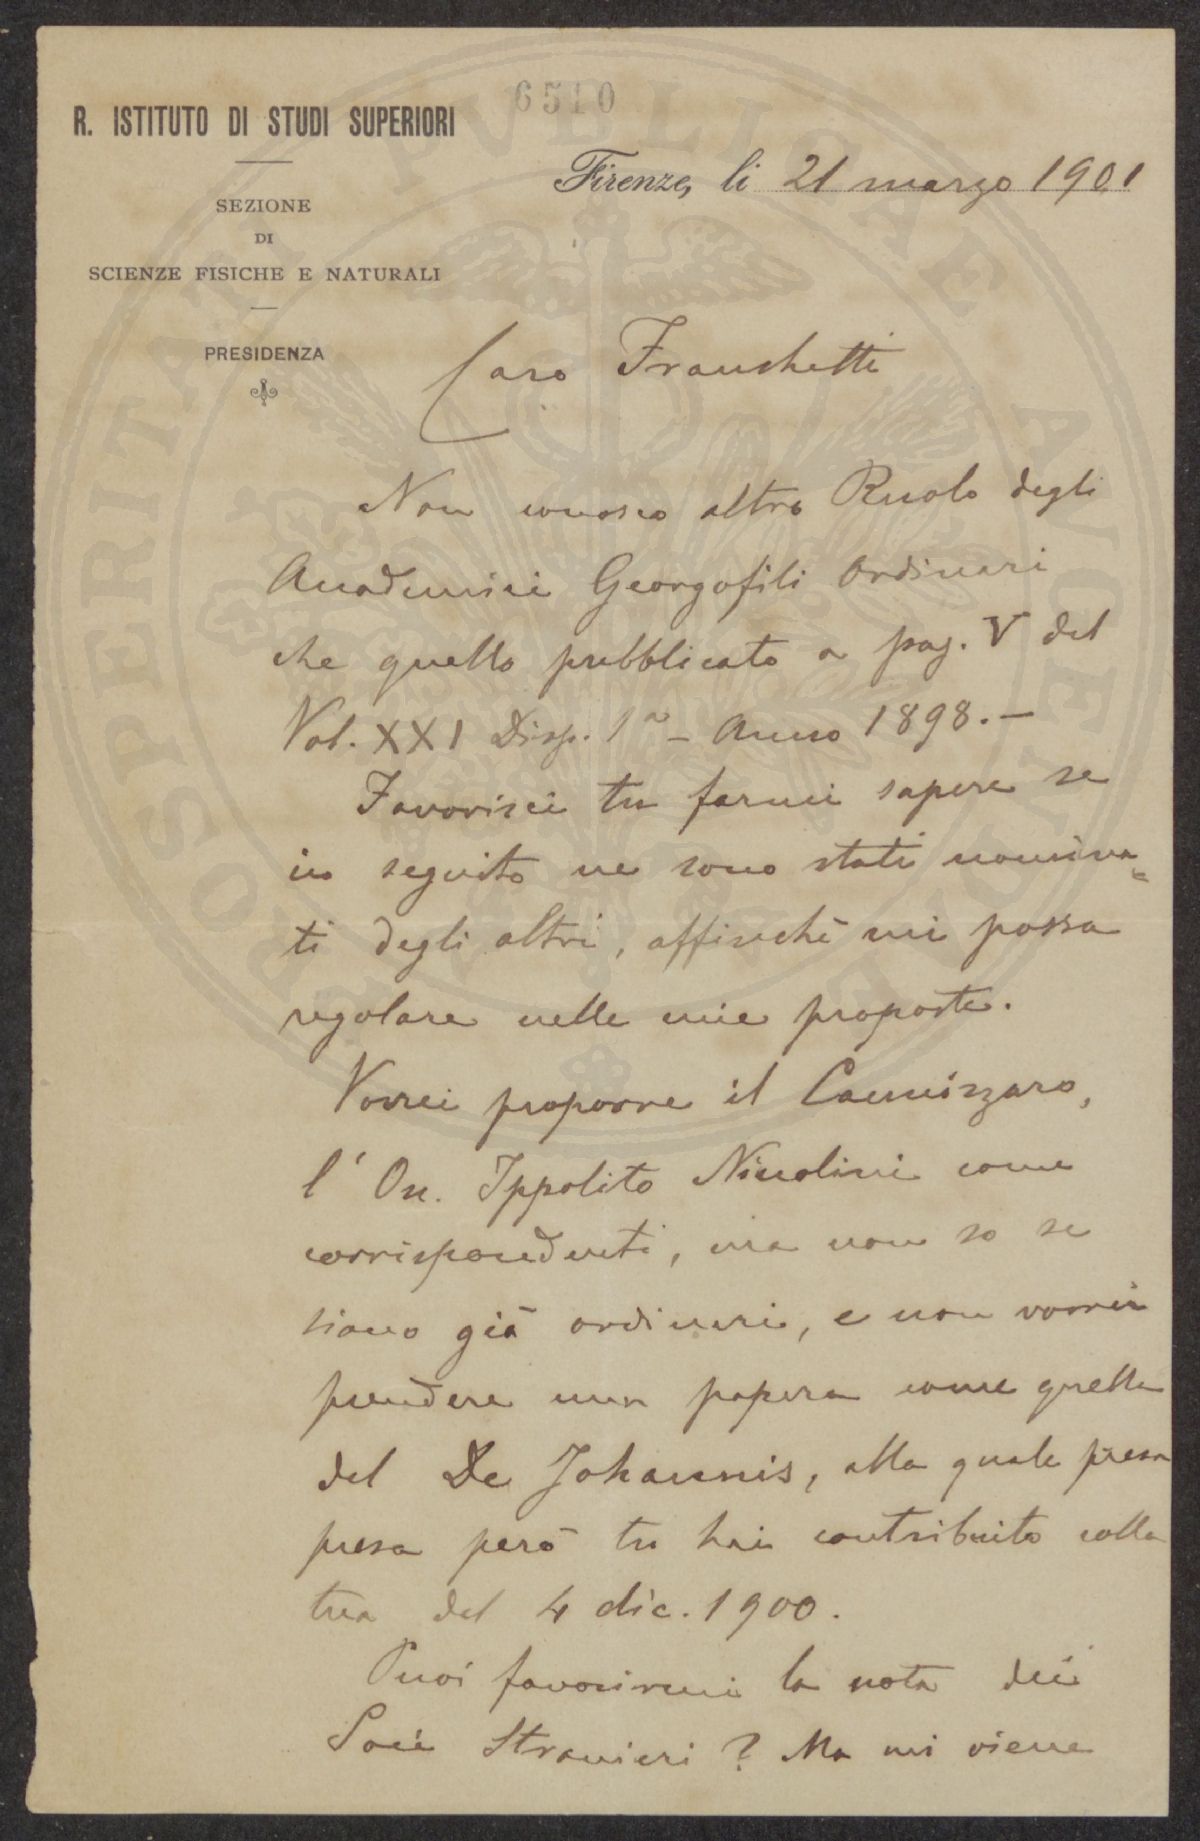 6510
R. ISTITUTO DI STUDI SUPERIORI
Firenze, li 21 marzo 1901
SEZIONE
DI
SCIENZE FISICHE E NATURALI
PRESIDENZA
Caro Franchetti
Non conosco altro Ruolo degli
Accademici Georgofili Ordinari
che quello pubblicato a pag. V del
Vol. XXI Disp. 1a - Anno 1898. -
Favorisci tu farmi sapere se
in seguito ne sono stati nomina=
ti degli altri, affinchè mi possa
regolare nelle mie proposte.
Vorrei proporre il Cannizzaro,
l'On. Ippolito Niccolini come
corrispondenti, ma non so se
siano già ordinari, e non vorrei
prendere una papera come quella
del De Johannis, alla quale presa
presa però tu hai contribuito colla
tua del 4 dic. 1900.
Puoi favorirmi la nota dei
Soci Stranieri? Ma mi viene
PROSPERITATI PVBLICAE AVGENDAE